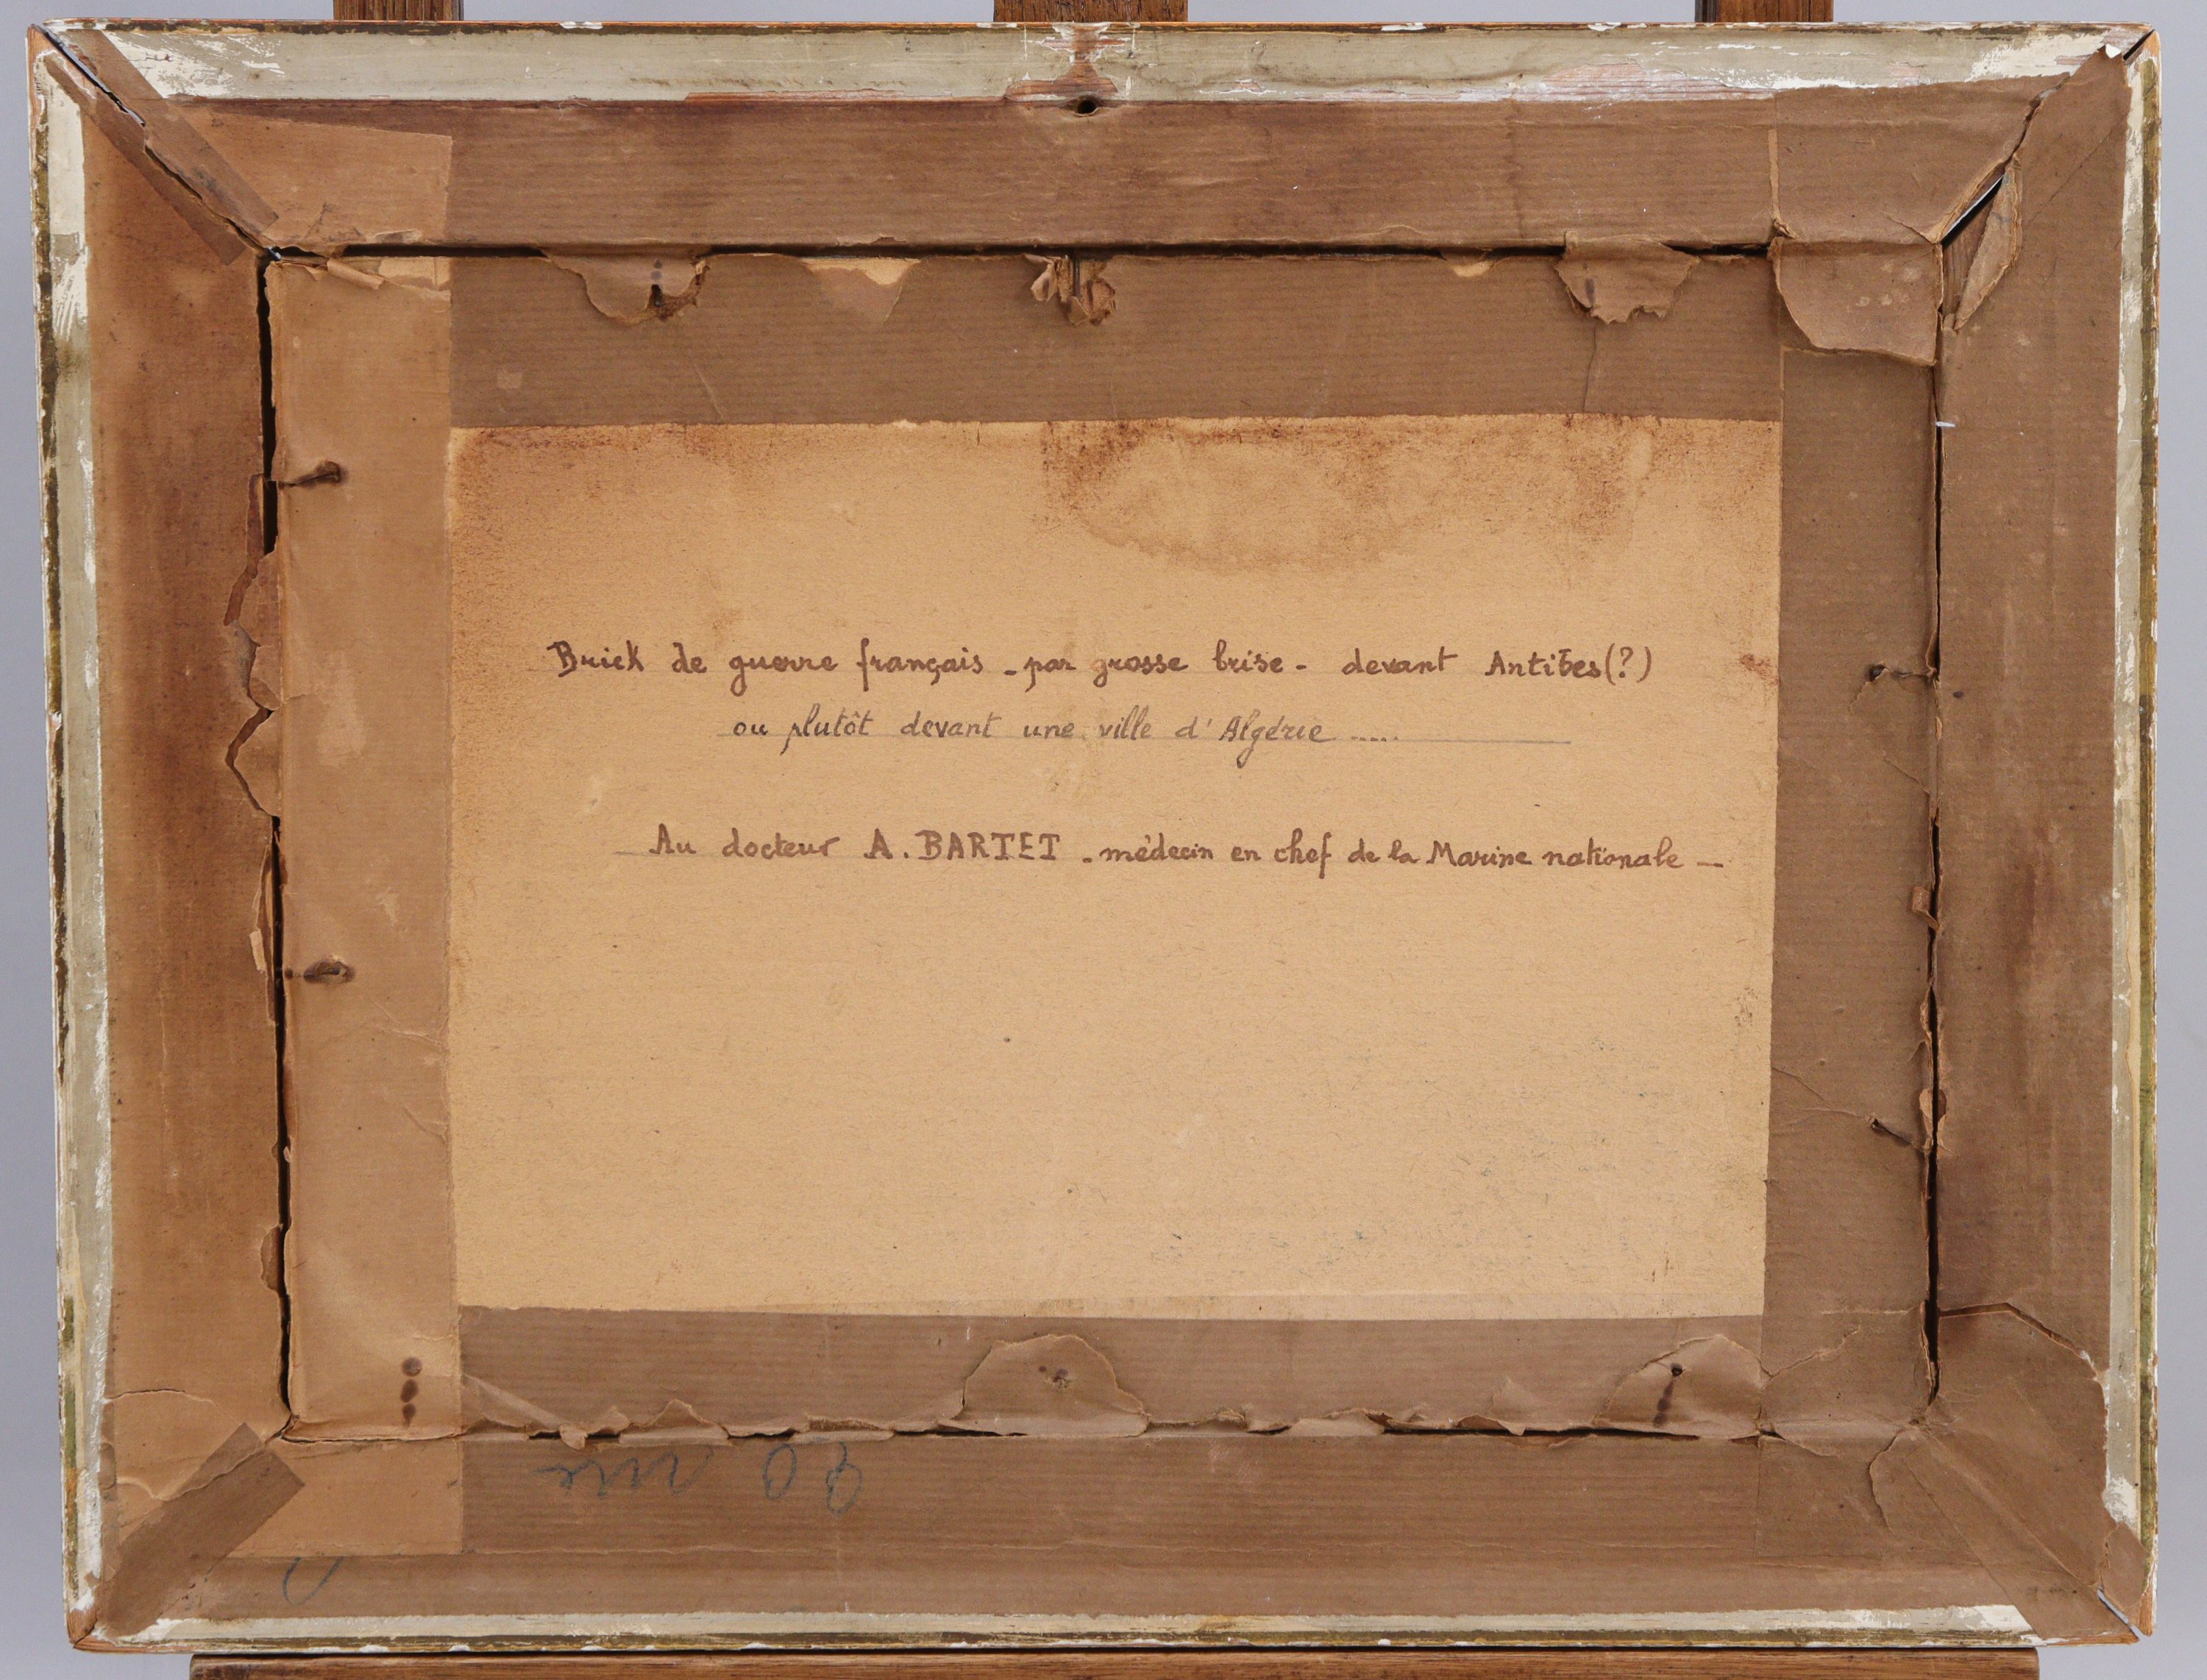 Brick de guerre français - par grosse brise - devant Antibes(?)
ou plutôt devant une ville d'Algérie .....
Au docteur A. BARTET - médecin en chef de la Marine nationale -